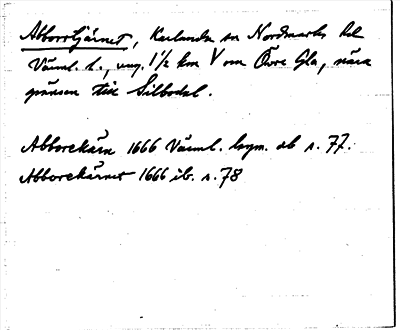 Abborrtjärnet, Karlanda sn Nordmarks hd
Värml. l., ung. 1 1/2 km V om Övre Gla, nära
gränsen till Silbodal.
Abborekärn 1666 Värml. hgm. ab s. 77.
Abborekärnet 1666 ib. s. 78